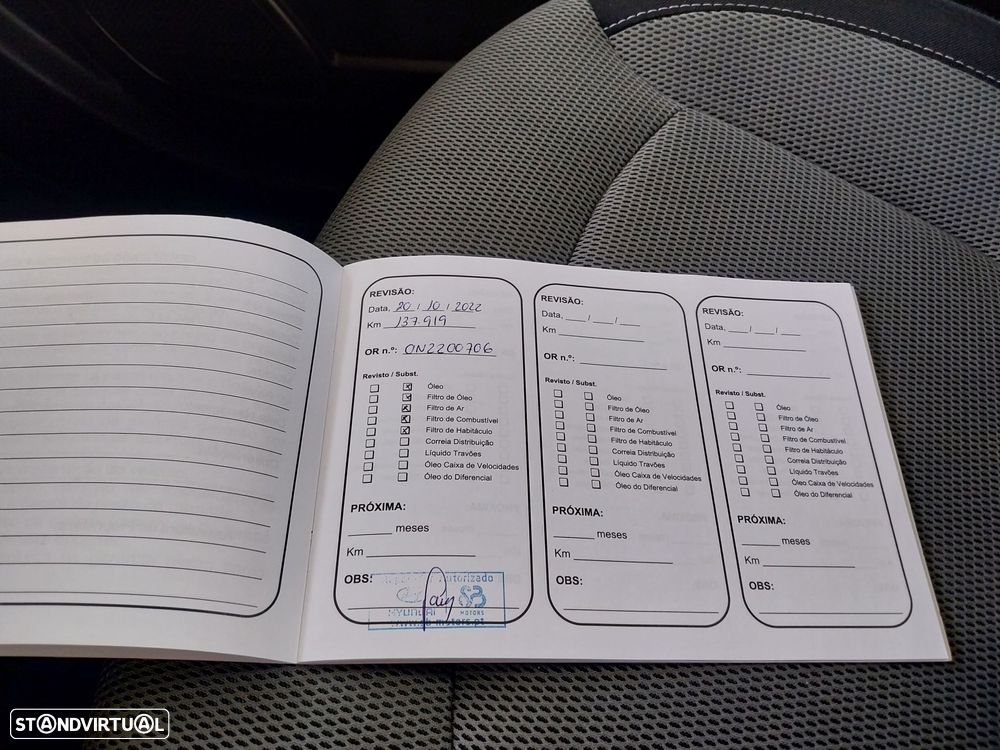 REVISÃO:
Data, 20 / 10 / 2022
Km 137.919
OR n.º: ON2200706
Revisto / Subst.
Óleo
Filtro de Óleo
Filtro de Ar
Filtro de Combustível
Filtro de Habitáculo
Correia Distribuição
Líquido Travões
Óleo Caixa de Velocidades
Óleo do Diferencial
PRÓXIMA:
meses
Km
OBS:
Autorizado
HYUNDAI
SB
MOTORS
www.sb-motors.pt
REVISÃO:
Data, / /
Km
OR n.º:
Revisto / Subst.
Óleo
Filtro de Óleo
Filtro de Ar
Filtro de Combustível
Filtro de Habitáculo
Correia Distribuição
Líquido Travões
Óleo Caixa de Velocidades
Óleo do Diferencial
PRÓXIMA:
meses
Km
OBS:
REVISÃO:
Data, / /
Km
OR n.º:
Revisto / Subst.
Óleo
Filtro de Óleo
Filtro de Ar
Filtro de Combustível
Filtro de Habitáculo
Correia Distribuição
Líquido Travões
Óleo Caixa de Velocidades
Óleo do Diferencial
PRÓXIMA:
meses
Km
OBS:
STANDVIRTUAL